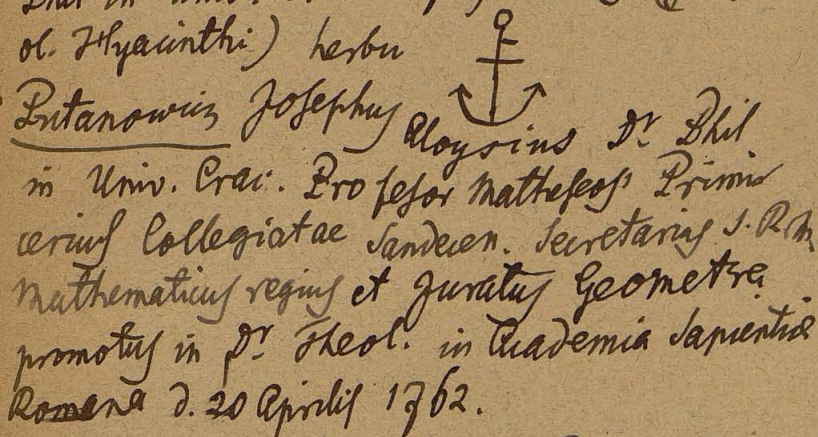 ol. Hyacinthi) herbu
Putanowicz Josephus
Aloysius Dr Phil
in Univ. Crac. Professor Matheseos Primi
cerius Collegiatae Sandecen. Secretarius S. R. M
Mathematicus regius et Juratus Geometra
promotus in Dr Theol. in Academia Sapientiae
Romana d. 20 Aprilis 1762.